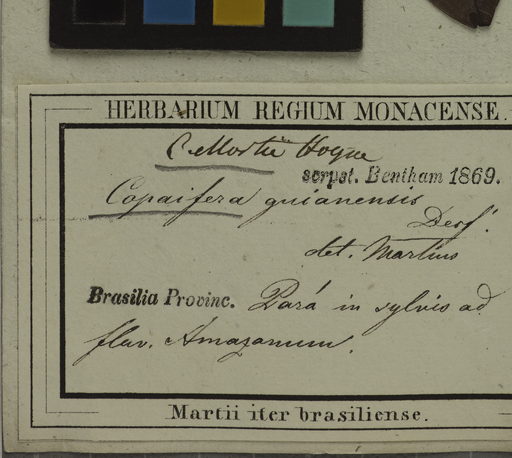 HERBARIUM REGIUM MONACENSE.
C. Martii Hayne
scrpst. Bentham 1869.
Copaifera guianensis
Desf.
det. Martius
Brasilia Provinc. Pará in sylvis ad
fluv. Amazonum.
Martii iter brasiliense.